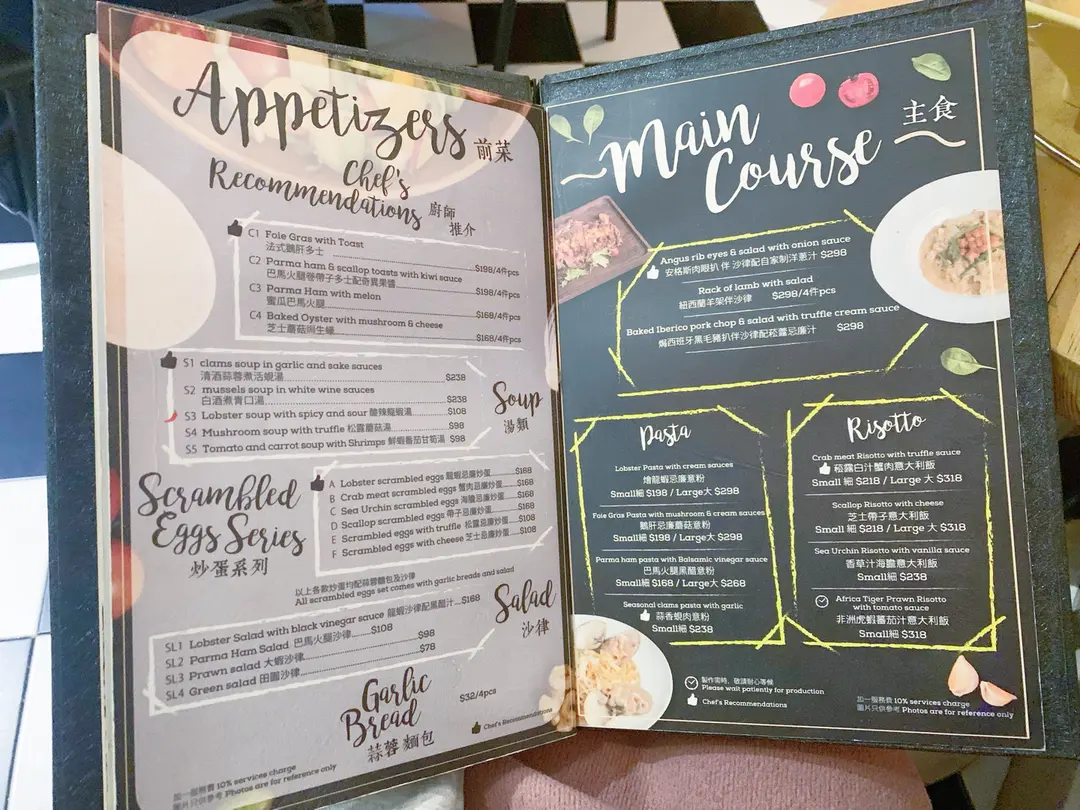 Appetizers 前菜
Chef's
Recommendations 廚師
推介
C1 Foie Gras with Toast
法式鵝肝多士 $198/4件pcs
C2 Parma ham & scallop toasts with kiwi sauce
巴馬火腿帶子多士配奇異果醬 $198/4件pcs
C3 Parma Ham with melon
蜜瓜巴馬火腿 $168/4件pcs
C4 Baked Oyster with mushroom & cheese
芝士蘑菇焗生蠔 $168/4件pcs
S1 clams soup in garlic and sake sauces
清酒蒜蓉煮活蜆湯 $238
S2 mussels soup in white wine sauces
白酒煮青口湯 $238
S3 Lobster soup with spicy and sour 酸辣龍蝦湯 $108
S4 Mushroom soup with truffle 松露蘑菇湯 $98
S5 Tomato and carrot soup with Shrimps 鮮蝦番茄甘筍湯 $98
Soup
湯類
Scrambled
Eggs Series
炒蛋系列
A Lobster scrambled eggs 龍蝦忌廉炒蛋 $168
B Crab meat scrambled eggs 蟹肉忌廉炒蛋 $168
C Sea Urchin scrambled eggs 海膽忌廉炒蛋 $168
D Scallop scrambled eggs 帶子忌廉炒蛋 $168
E Scrambled eggs with truffle 松露忌廉炒蛋 $108
F Scrambled eggs with cheese 芝士忌廉炒蛋 $108
以上各款炒蛋均配蒜蓉麵包及沙律
All scrambled eggs set comes with garlic breads and salad
Salad
沙律
SL1 Lobster Salad with black vinegar sauce 龍蝦沙律配黑醋汁 $168
SL2 Parma Ham Salad 巴馬火腿沙律 $108
SL3 Prawn salad 大蝦沙律 $98
SL4 Green salad 田園沙律 $78
Garlic
Bread
蒜蓉麵包
$32/4pcs
Chef's Recommendations
加一服務費 10% services charge
圖片只供參考 Photos are for reference only
Main
Course
主食
Angus rib eyes & salad with onion sauce
安格斯肉眼扒伴沙律配自家制洋蔥汁 $298
Rack of lamb with salad
紐西蘭羊架伴沙律 $298/4件pcs
Baked Iberico pork chop & salad with truffle cream sauce
焗西班牙黑毛豬扒伴沙律配菘露忌廉汁 $298
Pasta
Lobster Pasta with cream sauces
燴龍蝦忌廉意粉
Small細 $198 / Large大 $298
Foie Gras Pasta with mushroom & cream sauces
鵝肝忌廉蘑菇意粉
Small細 $198 / Large大 $298
Parma ham pasta with Balsamic vinegar sauce
巴馬火腿黑醋意粉
Small細 $168 / Large大 $268
Seasonal clams pasta with garlic
蒜香蜆肉意粉
Small細 $238
Risotto
Crab meat Risotto with truffle sauce
菘露白汁蟹肉意大利飯
Small 細 $218 / Large 大 $318
Scallop Risotto with cheese
芝士帶子意大利飯
Small 細 $218 / Large 大 $318
Sea Urchin Risotto with vanilla sauce
香草汁海膽意大利飯
Small細 $238
Africa Tiger Prawn Risotto
with tomato sauce
非洲虎蝦蕃茄汁意大利飯
Small細 $318
製作需時，敬請耐心等候
Please wait patiently for production
Chef's Recommendations
加一服務費 10% services charge
圖片只供參考 Photos are for reference only